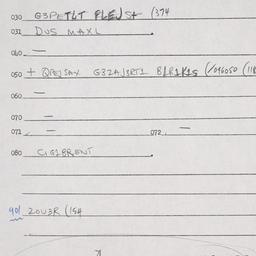 030 G3PETLT PLEJSt (374
031 DUS MAXL
040 —
050 + QPEJSAX G32AJ3RT1 B1R1K1S (/096050 (118
060 —
070 —
071 — 072 —
080 CIG1BRENT
901 20U3R (154